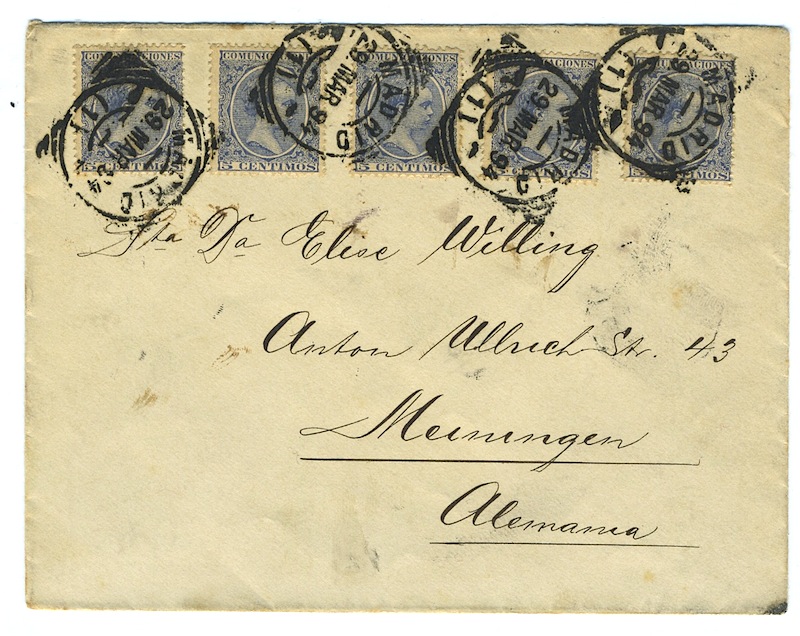 COMUNICACIONES COMUNICACIONES COMUNICACIONES COMUNICACIONES COMUNICACIONES
MADRID 29 MAR 94 (1)
MADRID 29 MAR 94 (1)
MADRID 29 MAR 94 (1)
MADRID 29 MAR 94 (1)
5 CENTIMOS 5 CENTIMOS 5 CENTIMOS 5 CENTIMOS 5 CENTIMOS
Sta Da Elise Willing
Anton Ullrich Str. 43
Meiningen
Alemania